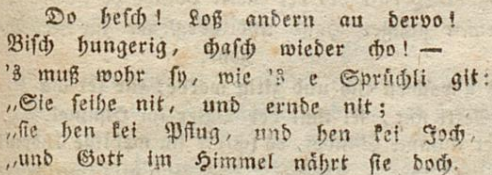 Do hesch! Loß andern au dervo!
Bisch hungerig, chasch wieder cho! —
's muß wohr sy, wie 's e Sprüchli git:
„Sie seihe nit, und ernde nit;
„sie hen kei Pflug, und hen kei Joch,
„und Gott im Himmel nährt sie doch.